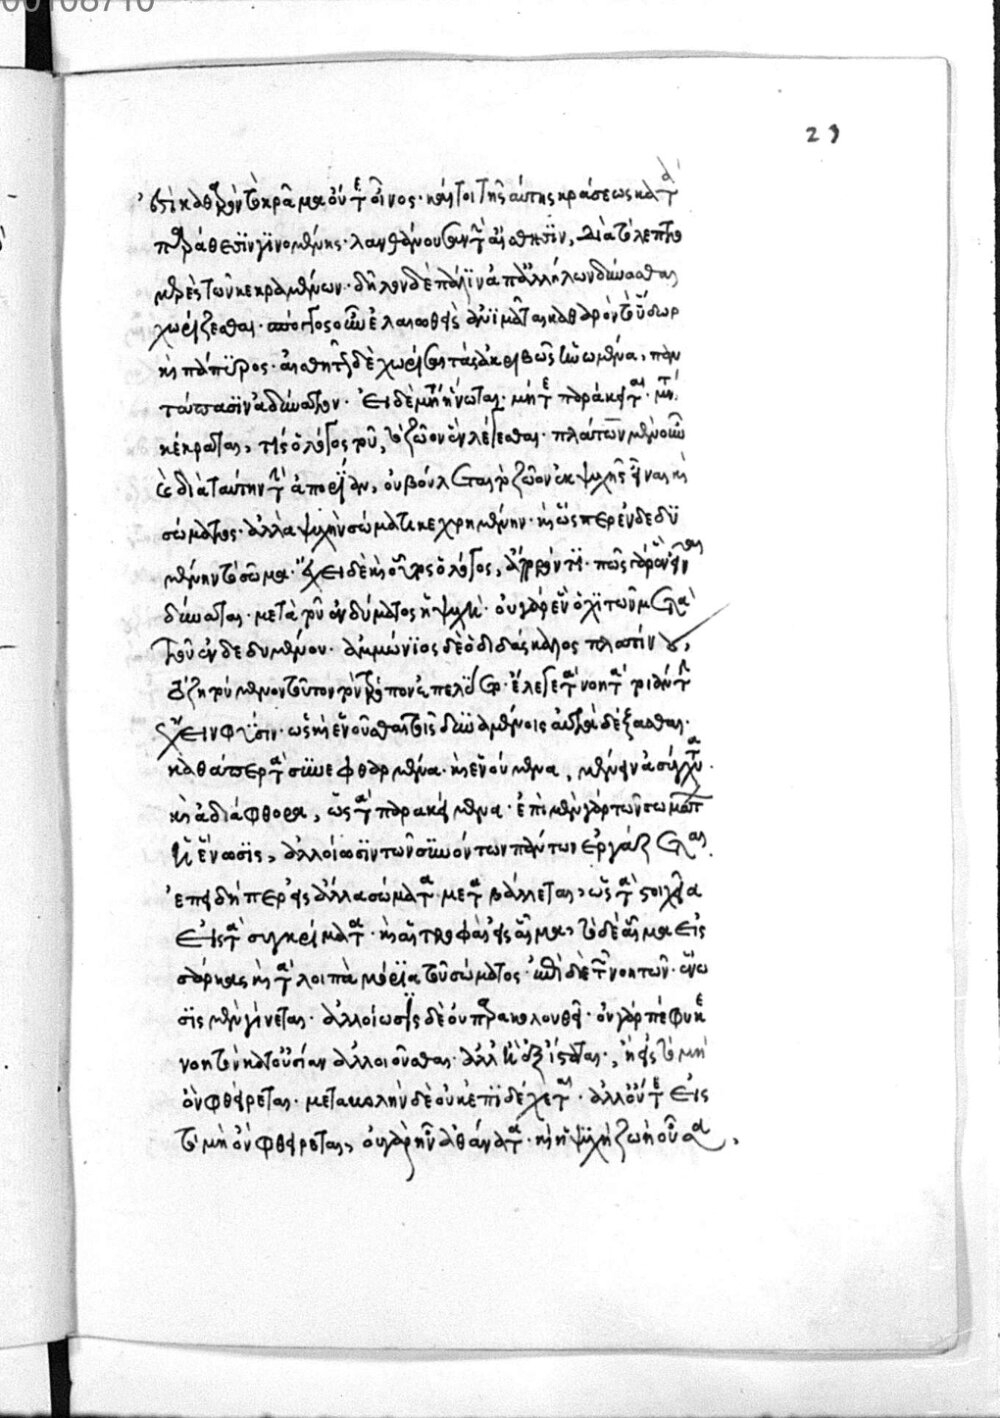 21
ἐστὶ καθαρὸν τὸ κρᾶμα οὔτε οἶνος· καίτοι τῆς αὐτῆς κράσεως κατὰ
παράθεσιν γινομένης· λανθανούσης τὴν αἴσθησιν, διὰ τὸ λεπτο
μερὲς τῶν κεκραμένων· δῆλον δὲ πάλιν ἀπ' ἀλλήλων δύνασθαι
χωρίζεσθαι· σπόγγος οὖν ἐλαιωθεὶς ἀνιμᾶται καθαρὸν τὸ ὕδωρ
καὶ πάπυρος· αἰσθητῶς δὲ χωρίσαι τὰ ἀκριβῶς ἡνωμένα, παν
τάπασιν ἀδύνατον· εἰ δὲ μὴ ἥνωται· μήτε παράκειται· μήτε
κέκραται, τίς ὁ λόγος τοῦ, τὸ ζῶον ἓν λέγεσθαι· πλάτων μὲν οὖν
καὶ διὰ ταύτην τὴν ἀπορίαν, οὐ βούλεται τὸ ζῶον ἐκ ψυχῆς εἶναι καὶ
σώματος· ἀλλὰ ψυχὴν σώματι κεχρημένην· καὶ ὥσπερ ἐνδεδυ
μένην τὸ σῶμα· ἔχει δὲ καὶ οὗτος ὁ λόγος, ἄπορόν τι· πῶς γὰρ ἓν εἶναι
δύναται· μετὰ τοῦ ἐνδύματος ἡ ψυχή· οὐ γὰρ ἓν ὁ χιτὼν μετὰ
τοῦ ἐνδεδυμένου· ἀμμώνιος δὲ ὁ διδάσκαλος πλωτίνου,
τὸ ζητούμενον τοῦτον τὸν τρόπον ἐπελύετο· ἔλεγε τὰ νοητὰ τοιαύτην
ἔχειν φύσιν· ὡς καὶ ἑνοῦσθαι τοῖς δυναμένοις αὐτὰ δέξασθαι·
καθάπερ τὰ συνεφθαρμένα· καὶ ἑνούμενα, μένειν ἀσύγχυτα·
καὶ ἀδιάφθορα, ὡς τὰ παρακείμενα· ἐπὶ μὲν γὰρ τῶν σωμάτων
ἡ ἕνωσις, ἀλλοίωσιν τῶν συνιόντων πάντων ἐργάζεται·
ἐπειδήπερ εἰς ἄλλα σώματα μεταβάλλεται, ὡς τὰ στοιχεῖα
εἰς τὰ συγκρίματα· καὶ αἱ τροφαὶ εἰς αἷμα, τὸ δὲ αἷμα εἰς
σάρκας καὶ τὰ λοιπὰ μόρια τοῦ σώματος· ἐπὶ δὲ τῶν νοητῶν· ἕνω
σις μὲν γίνεται· ἀλλοίωσις δὲ οὐ παρακολουθεῖ· οὐ γὰρ πέφυκε
νοητὸν κατ' οὐσίαν ἀλλοιοῦσθαι· ἀλλ' ἢ ἐξίσταται, ἢ εἰς τὸ μὴ
ὂν φθείρεται· μεταβολὴν δὲ οὐκ ἐπιδέχεται· ἀλλ' οὔτε εἰς
τὸ μὴ ὂν φθείρεται, οὐ γὰρ ἦν ἀθάνατα· καὶ ἡ ψυχὴ ζωὴ οὖσα,